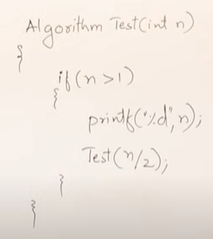 Algorithm Test(int n)
{
if(n>1)
{
printf("%d",n);
Test(n/2);
}
}